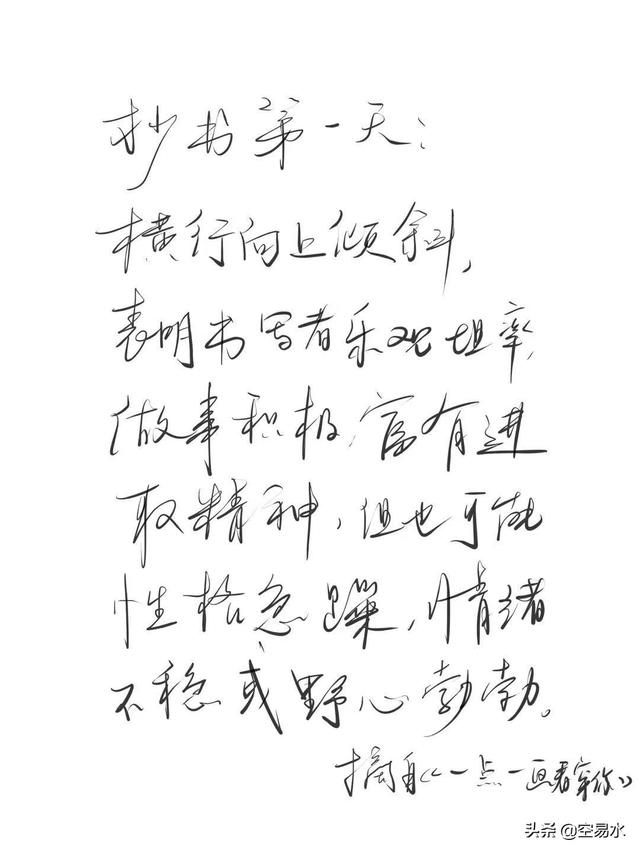 抄书第一天：
横行向上倾斜，
表明书写者乐观坦率，
做事积极，富有进
取精神，但也可能
性格急躁，情绪
不稳或野心勃勃。
摘自《一点一画看穿你》
头条@空易水